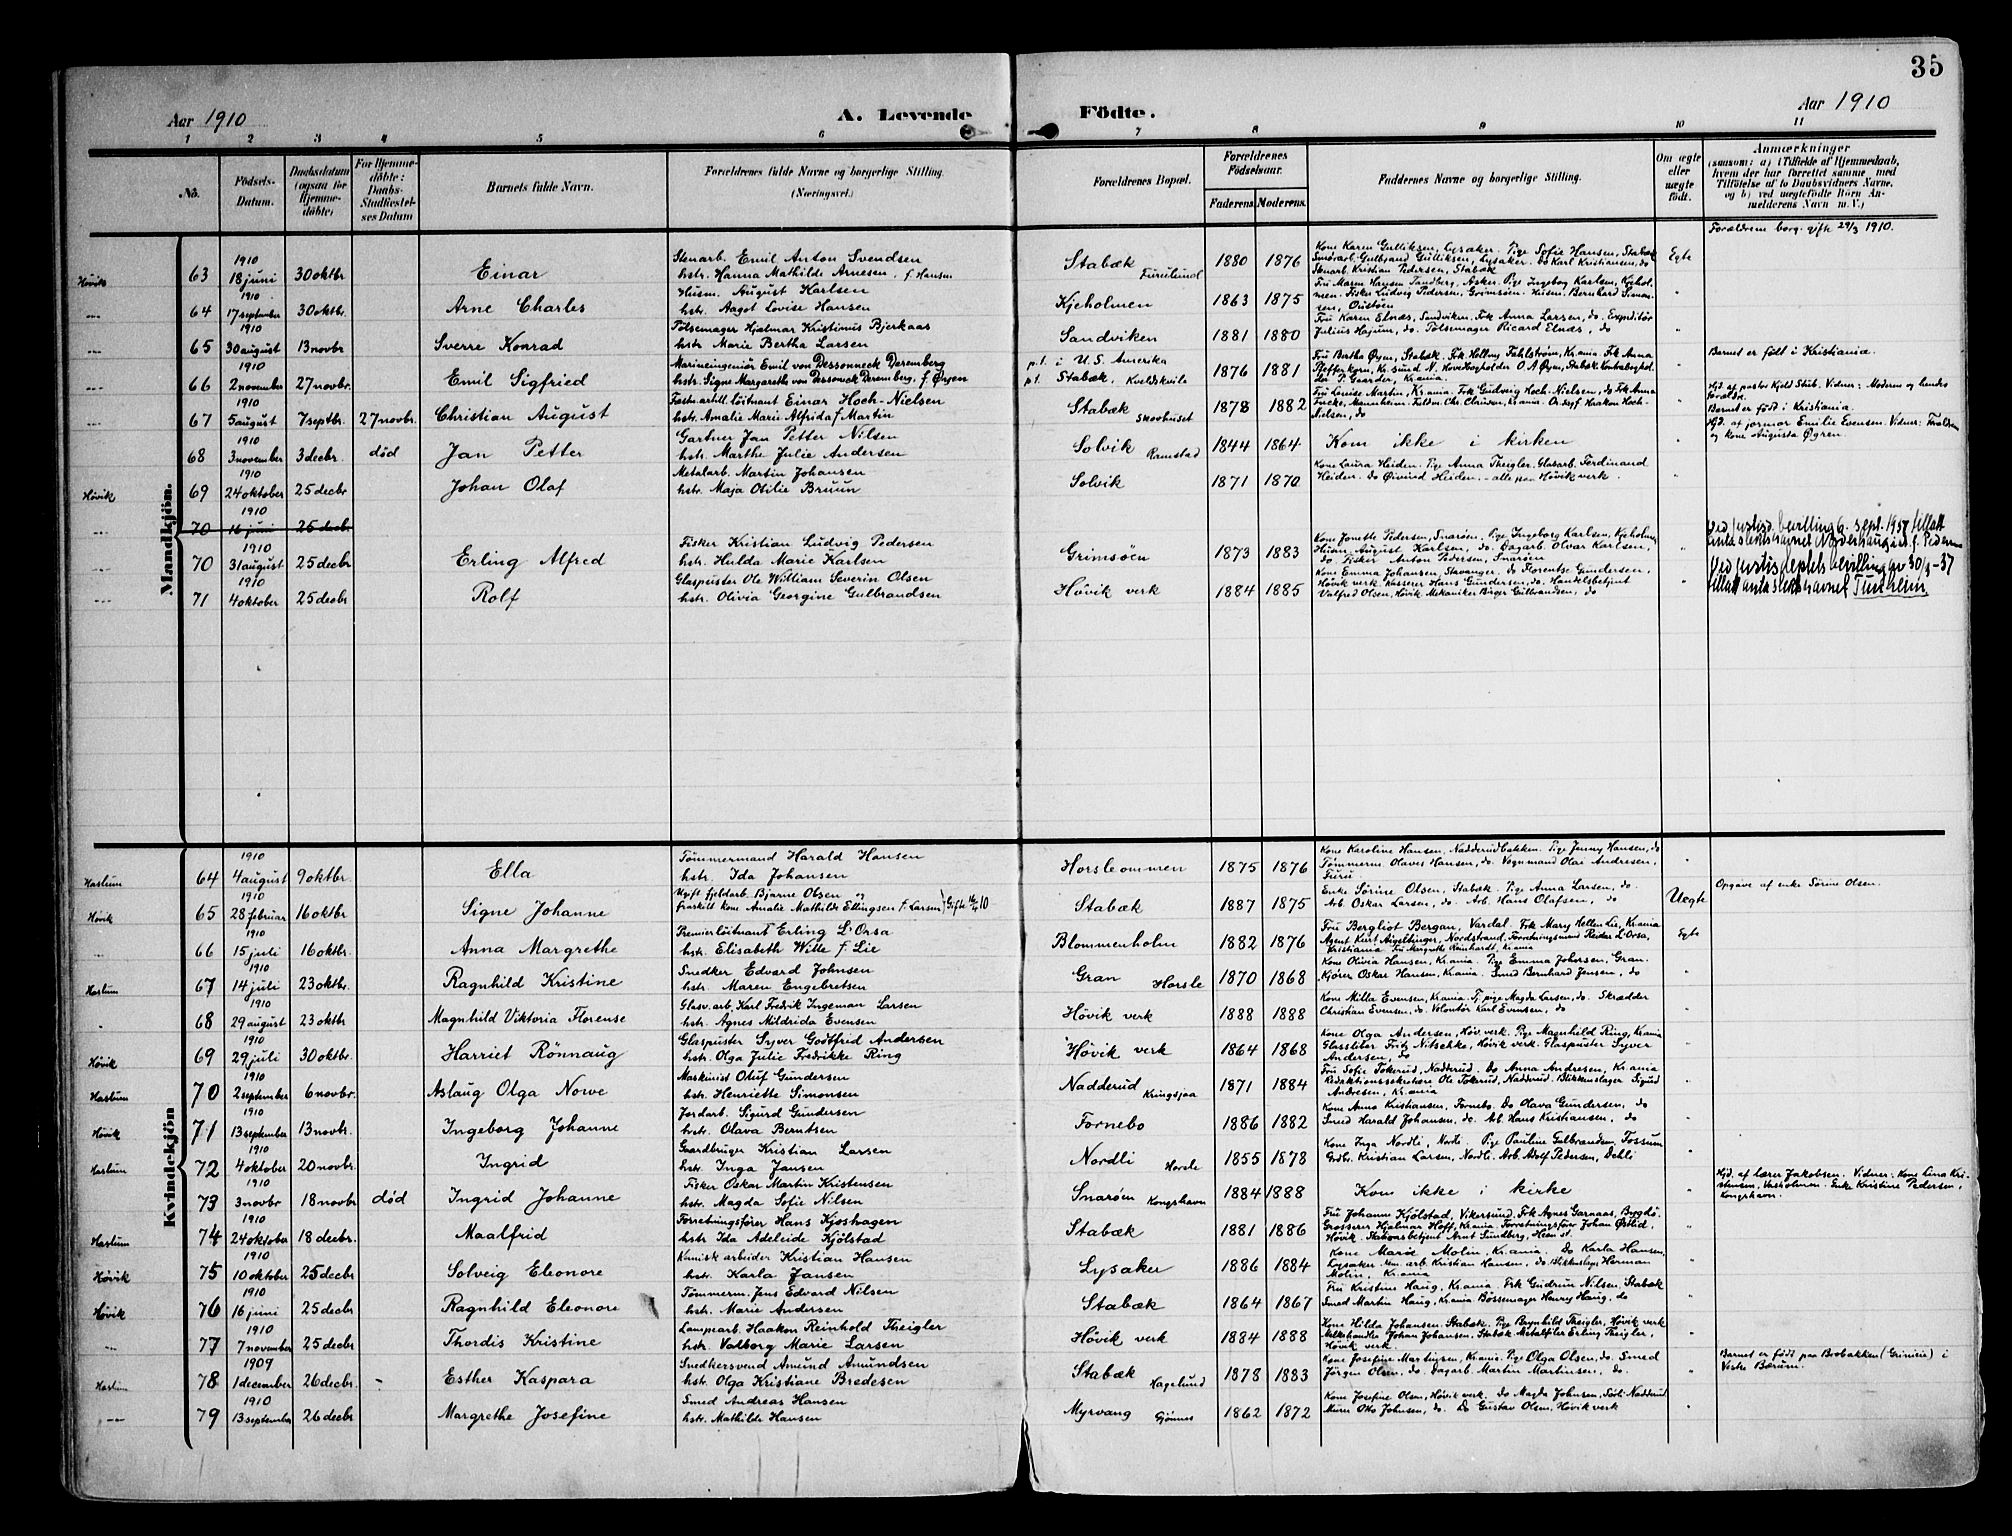 35
Aar 1910
A. Levende Födte.
Aar 1910
1 2 3 4 5 6 7 8 9 10 11
No.
Födsels-Datum.
Daabsdatum (ogsaa for Hjemme-döbte)
For Hjemme-döbte: Daabs-Stadfæstel-ses Datum
Barnets fulde Navn.
Forældrenes fulde Navne og borgerlige Stilling. (Næringsvei.)
Forældrenes Bopæl.
Forældrenes Födselsaar.
Faderens Moderens
Faddernes Navne og borgerlige Stilling.
Om ægte eller uægte födt.
Anmærkninger
(saasom: a) i Tilfælde af Hjemmedaab, hvem der har forrettet samme med Tilföielse af to Daabsvidners Navne, og b) ved uægtefödte Börn An-melderens Navn m. V.)
Mandkjön.
Forældrene borg. gifte 29/3 1910.
Høvik 63 1910 18 juni 30 oktbr. Einar
Stenarb. Emil Anton Svendsen
hstr. Hanna Mathilde Arnesen f. Hansen
Stabæk 1880 1876
Kone Karen Gulliksen, Lysaker. Pige Sofie Hansen, Stabæk
Smørarb. Gulbrand Gulliksen, Lysaker. do Karl Kristiansen, do
Stenarb. Kristian Pedersen, Stabæk
Egte
64 1910 17 september 30 oktbr. Arne Charles
Husm. August Karlsen
hstr. Aagot Lovise Hansen
Kjeholmen 1863 1875
Fru Maren Hansen Sandberg, Asker. Pige Ingeborg Karlsen, Kjehol-
men. Fisker Ludvig Pedersen, Grimsøen. Husm. Bernhard Simon-
sen, Ostøen
65 1910 30 august 13 novbr Sverre Konrad
Pølsemager Hjalmar Kristinus Bjerkaas
hstr Marie Bertha Larsen
Sandviken 1881 1880
Fru Karen Elnæs, Sandviken. Frk Anna Larsen, do. Expeditør
Julius Hajum, do. Pølsemager Ricard Elnæs, do
66 1910 2 november 27 novbr. Emil Sigfried
Marineingeniør Emil von Dessonneck Deremberg
hstr. Signe Margareth von Dessonneck Deremberg. f. Øyen
p.t. i U.S. Amerika
pt. Stabæk, Kveldshvile 1876 1881
Fru Berthe Øyen, Stabæk. Frk Helling Fahlstrøm, Krania Frk Anna
Pfefferkorn, Kr.sund N. Hovedbogholder O.A Øyen, Stabæk Kontraboghol-
der P. Gaarder, Krania
Barnet er født i Kristiania.
67 1910 5 august 7 septbr. 27 novbr. Christian August
Fæstn.artill. løitnant Einar Hoch-Nielsen
hstr. Amalie Marie Alfrida f. Martin
Stabæk Skovhuset 1878 1882
Fru Louise Martin, Krania. Frk Gudvig Hoch-Nielsen, do Frk Anna
Nielsen, do
Hjd. af pastor Kjeld Stub. Vidner: Moderen og hendes
forældre.
Barnet er født i Kristiania.
68 1910 3 november 3 decbr. død Jan Petter
Gartner Jan Petter Nilsen
hstr. Marthe Julie Andersen
Solvik Ramstad 1844 1864
Kom ikke i kirken
Hjd. af jormor Emilie Evensen. Vidner: Forældrene
og kone Augusta Øgren.
Høvik 69 1910 24 oktober 25 decbr Johan Olaf
Metalarb. Martin Johansen
hstr. Maja Otilie Bruun
Solvik 1871 1870
Kone Laura Heiden. Pige Anna Theigler. Glasarb. Ferdinand
Heiden. do Øivind Heiden. - alle paa Høvik verk.
70 1910 16 juni 25 decbr.
70 1910 31 august 25 decbr Erling Alfred
Fisker Kristian Ludvig Pedersen
hstr. Hulda Marie Karlsen
Grimsøen 1873 1883
Kone Jonette Pedersen, Snarøen. Pige Ingeborg Karlsen, Kjeholmen
Husm. August Karlsen, do. Dagarb. Olvar Karlsen,
do Fisker Anton Pedersen, Snarøen
Ved justisd. bevilling 6. sept. 1937 tillatt
anta slektsnavnet Nordenhaug ist. f. Pedersen
71 1910 4 oktober 25 decbr Rolf
Glaspuster Ole William Severin Olsen
hstr. Olivia Georgine Gulbrandsen
Høvik verk 1884 1885
Kone Emma Johansen, Stavanger. do Florentse Gundersen,
Høvik verk. Kasserer Hans Gundersen, do. Handelsbetjent
Valfred Olsen, Høvik. Mekaniker Birger Gulbrandsen, do
Ved justisdeptets bevilling av 30/3-37
tillatt anta slektsnavnet Tunheim
Kvindekjön
Haslum 64 1910 4 august 9 oktbr. Ella
Tømmermand Harald Hansen
hstr. Ida Johansen
Horsleommen 1875 1876
Kone Karoline Hansen, Nadderudbakken. Pige Jenny Hansen, do
Tømmerm. Olaves Hansen, do. Vognmand Olav Andersen,
Furu
Høvik 65 1910 28 februar 16 oktbr. Signe Johanne
Ugift fjeldarb. Bjarne Olsen og
fraskilt kone Amalie Mathilde Ellingsen f. Larsen
Stabæk 1887 1875
Enke Sørine Olsen, Stabæk. Pige Anna Larsen, do.
Arb. Oskar Larsen, do. Arb. Hans Olafsen, do
Uegte
Opgave af enke Sørine Olsen.
66 1910 15 juli 16 oktbr. Anna Margrethe
Premierløitnant Erling L'Orsa
hstr. Elisabeth Witte f. Lie
Blommenholm 1882 1876
Fru Bergliot Bergan, Vardal. Frk Mary Hellen Lie, Krania
Agent Kurt Aigeltinger, Nordstrand. Forretningsmand Reidar L'Orsa,
Kristiania Fru Margrethe Reinhardt, Krania
Egte
Haslum 67 1910 14 juli 23 oktbr. Ragnhild Kristine
Snedker Edvard Johnsen
hstr. Maren Engebretsen
Gran Horsle 1870 1868
Kone Olivia Hansen, Krania. Pige Emma Johersen, Gran.
Kjører Oskar Hansen, Krania. Smed Bernhard Jensen, do
68 1910 29 august 23 oktbr Magnhild Viktoria Florense
Glasv.arb. Karl Fredrik Ingeman Larsen
hstr. Agnes Mildrida Evensen
Høvik verk 1888 1888
Kone Milla Evensen, Krania. Tj.pige Magda Larsen, do. Skrædder
Christian Evensen, do. Volontør Karl Evensen, do
Høvik 69 1910 29 juli 30 oktbr. Harriet Rönnaug
Glaspuster Syver Godtfred Andersen
hstr. Olga Julie Fredrikke Ring
Høvik verk 1864 1868
Kone Olga Andersen, Høv. verk. Pige Magnhild Ring, Krania
Glassliber Fritz Nitschke, Høvik verk. Glaspuster Syver
Andersen, do
Haslum 70 1910 2 september 6 novbr. Aslaug Olga Nowe
Maskinist Oluf Gundersen
hstr. Henriette Simonsen
Nadderud Kringsjaa 1871 1884
Fru Sofie Tokerud, Nadderud. Do Anna Andresen, Krania
Redaktionssekretær Ole Tokerud, Nadderud. Blikkenslager Sigurd
Andresen, Krania
Høvik 71 1910 13 september 13 novbr. Ingeborg Johanne
Jordarb. Sigurd Gundersen
hstr. Olava Berntsen
Fornebo 1886 1882
Kone Anna Kristiansen, Fornebo. Do Olava Gundersen, do
Smed Harald Johansen, do. Arb. Hans Kristiansen, do
Haslum 72 1910 4 oktober 20 novbr. Ingrid
Gaardbruger Kristian Larsen
hstr. Inga Jansen
Nordli Horsle 1855 1878
Kone Inga Nordli, Nordli. Pige Pauline Gulbrandsen, Fossum
Grdbr. Kristian Larsen, Nordli. Arb. Adolf Pedersen, Dehli
73 1910 3 novbr 18 novbr død Ingrid Johanne
Fisker Oskar Martin Kristensen
hstr. Magda Sofie Nilsen
Snarøen Kongshavn 1884 1888
Kom ikke i kirke
Hjd. af lærer Jakobsen. Vidner: Kone Lina Kri-
stensen, Vasholmen. Enke Kristine Pedersen,
Kongshavn.
Haslum 74 1910 24 oktober 18 decbr. Maalfrid
Forretningsfører Hans Kjoshagen
hstr Ida Adeleide Kjølstad
Stabæk 1881 1886
Fru Johanne Kjølstad, Vikersund. Frk Agnes Garnaas, Bergdø.
Grosserer Hjalmar Hoff, Krania Forretningsfører Johan Østlid,
Høvik. Stationsbetjent Arnt Sundberg, Heen st.
Høvik 75 1910 10 oktober 25 decbr Solveig Eleonore
Kemisk arbeider Kristian Hansen
hstr. Karla Jansen
Lysaker 1886 1884
Kone Marie Molin, Krania. Do Karla Hansen,
Lysaker kem arb. Kristian Hansen, do. Blikkenslager Herman
Molin, Krania
Høvik 76 1910 16 juni 25 decbr Ragnhild Eleonore
Tømmerm. Jens Edvard Nilsen
hstr. Marie Andersen
Stabæk 1864 1867
Fru Kristine Haug, Krania. Frk Gudrun Nilsen, Stabæk
Smed Martin Haug, Krania Bøssemager Henry Haug, do
77 1910 7 november 25 decbr Thordis Kristine
Lamparb. Haakon Reinhold Theigler
hstr. Valborg Marie Larsen
Høvik verk 1884 1888
Kone Hilda Johansen Stabæk. Pige Borghild Theigler, Høvik verk
Melkehandler Johan Johansen, Stabæk Metalfiler Erling Theigler,
Høvik verk
Haslum 78 1909 1 december 26 decbr. Esther Kaspara
Snedkersvend Amund Amundsen
hstr. Olga Kristiane Bredesen
Stabæk Hagelund 1878 1883
Kone Josefine Martinsen, Krania. Pige Olga Olsen, do. Smed
Jörgen Olsen, do. Dagarb. Martin Martinsen, do.
Barnet er født paa Brobakken (Grinie) i
Vestre Bærum.
79 1910 13 september 26 decbr. Margrethe Josefine
Smed Andreas Hansen
hstr. Mathilde Hansen
Myrvang Gjønnes 1862 1872
Kone Josefine Olsen, Høvik verk. Do Magda Johnsen, Nadderud
Murer Otto Johnsen, do. Do Gustav Olsen, Høvik verk